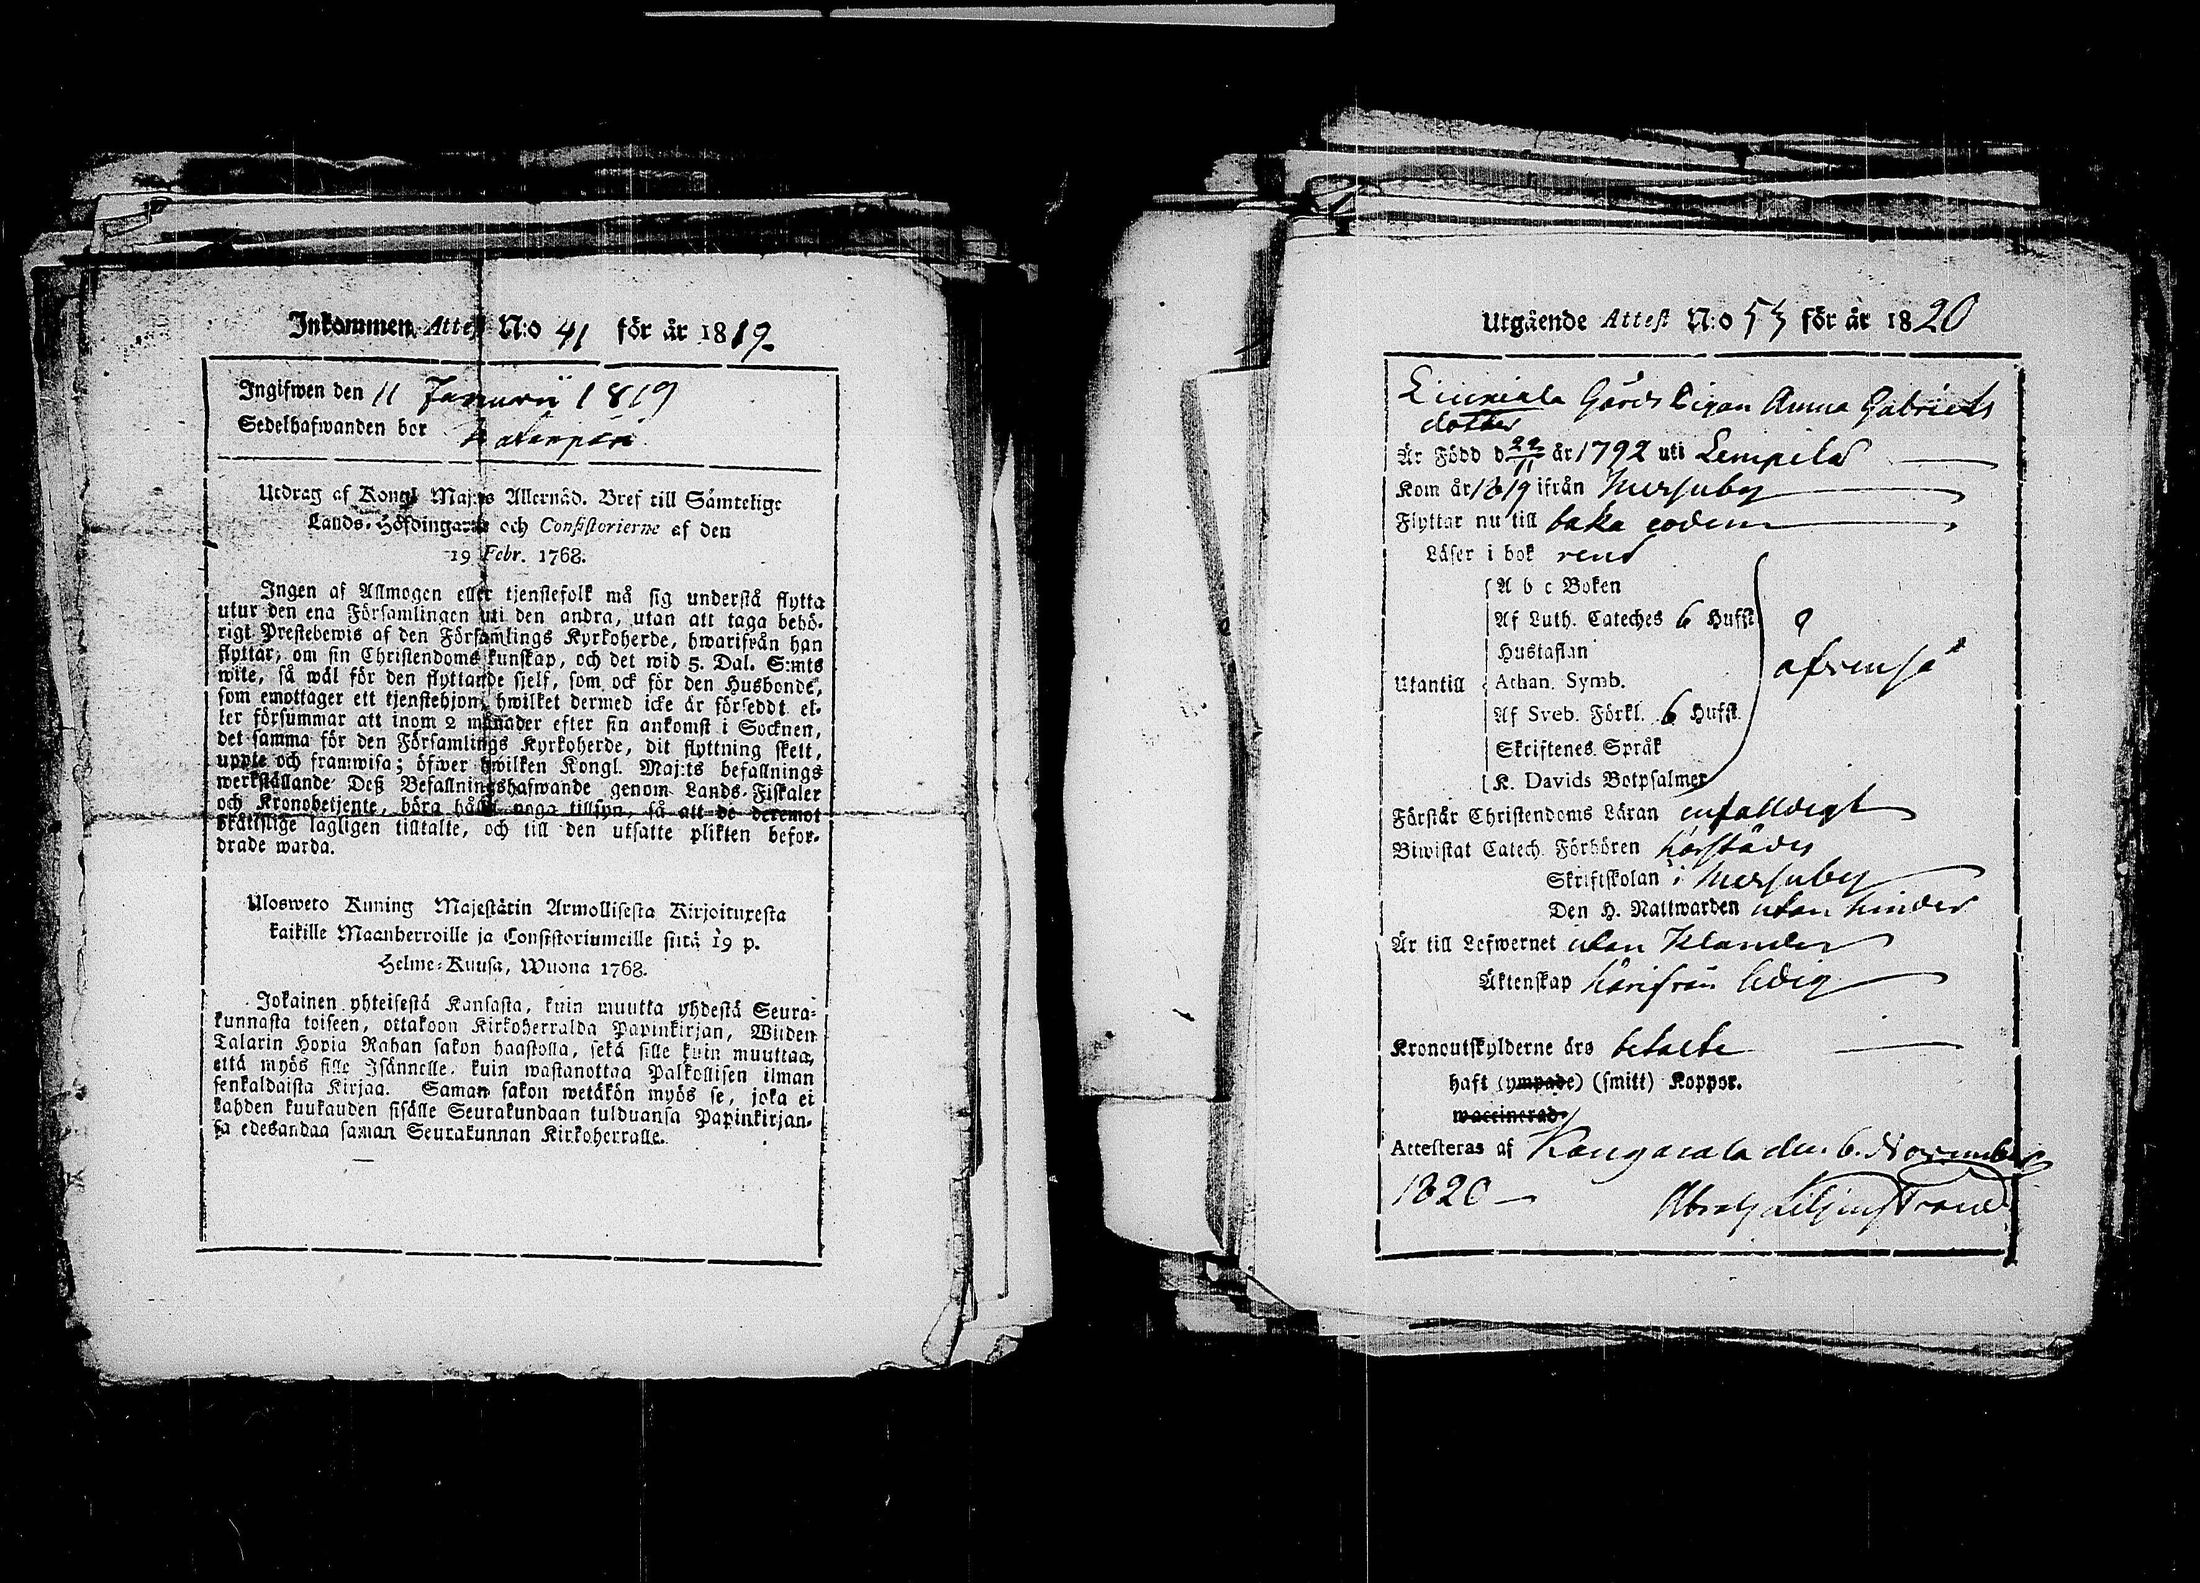 Inkommen Attest N:o 41 för år 1819.
Ingifwen den 11 Januarii 1819
Sedelhafwanden bor
Utdrag af Kongl Maj:ts Allernåd. Bref till Sämtelige
Lands-Höfdingarne och Consistorierne af den
19 Febr. 1768.
Ingen af Allmogen eller tjenstefolk må sig understå flytta
utur den ena Församlingen uti den andra, utan att taga behö-
rigt Prestebewis af den Församlings Kyrkoherde, hwarifrån han
flyttar, om sin Christendoms kunskap, och det wid 5. Dal. S:mts
wite, så wäl för den flyttande sjelf, som ock för den Husbonde,
som emottager ett tjenstehjon, hwilket dermed icke är försedt el-
ler försummar att inom 2 månader efter sin ankomst i Socknen,
det samma för den Församlings Kyrkoherde, dit flyttning skett,
uppte och framwisa; öfwer hwilken Kongl. Maj:ts befallnings
werkställande Deß Befallningshafwande genom Lands-Fiskaler
och Kronobetjente, böra hålla noga tillsyn, så att de deremot
brätslige lagligen tilltalte, och till den utsatte plikten befor-
drade warda.
Ulosweto Kuning Majestätin Armollisesta Kirjoituxesta
kaikille Maanherroille ja Consistoriumeille siitä 19 p.
Helme-Kuusa, Wuona 1768.
Jokainen yhteisestä Kansasta, kuin muutta yhdestä Seura-
kunnasta toiseen, ottakoon Kirkoherralda Papinkirjan, Wiiden
Talarin Hopia Rahan sakon haastolla, sekä sille kuin muuttaa,
että myös sille Isännelle, kuin wastanottaa Palkollisen ilman
senkaldaista Kirjaa. Saman sakon wetäkön myös se, joka ei
kahden kuukauden sisälle Seurakundaan tulduansa Papinkirjan-
sa edesandaa saman Seurakunnan Kirkoherralle.
Utgående Attest N:o 53 för år 1820
Gårds Pigan Anna Gabriels
dotter
Är Född d 22/11 år 1792 uti Lempelä
Kom år 1819 ifrån Mesuby
Flyttar nu till baka eodem
Läser i bok rent
A b c Boken
Af Luth. Cateches 6 Hufst
Hustaflan
Utantill Athan. Symb.
Af Sveb. Förkl. 6 Hufst.
Skriftenes Språk
K. Davids Botpsalmer
Förstår Christendoms Läran enfaldigt
Biwistat Catech. Förhören härstädes
Skriftskolan i Mesuby
Den H. Nattwarden utan hinder
Är till Lefwernet utan klander
Äktenskap härifrån ledig
Kronoutskylderne äro betalte
haft (ympade) (smitt) Koppor.
waccinerad
Attesteras af Kangasala den 6. November
1820 Abrah Liljenstrand